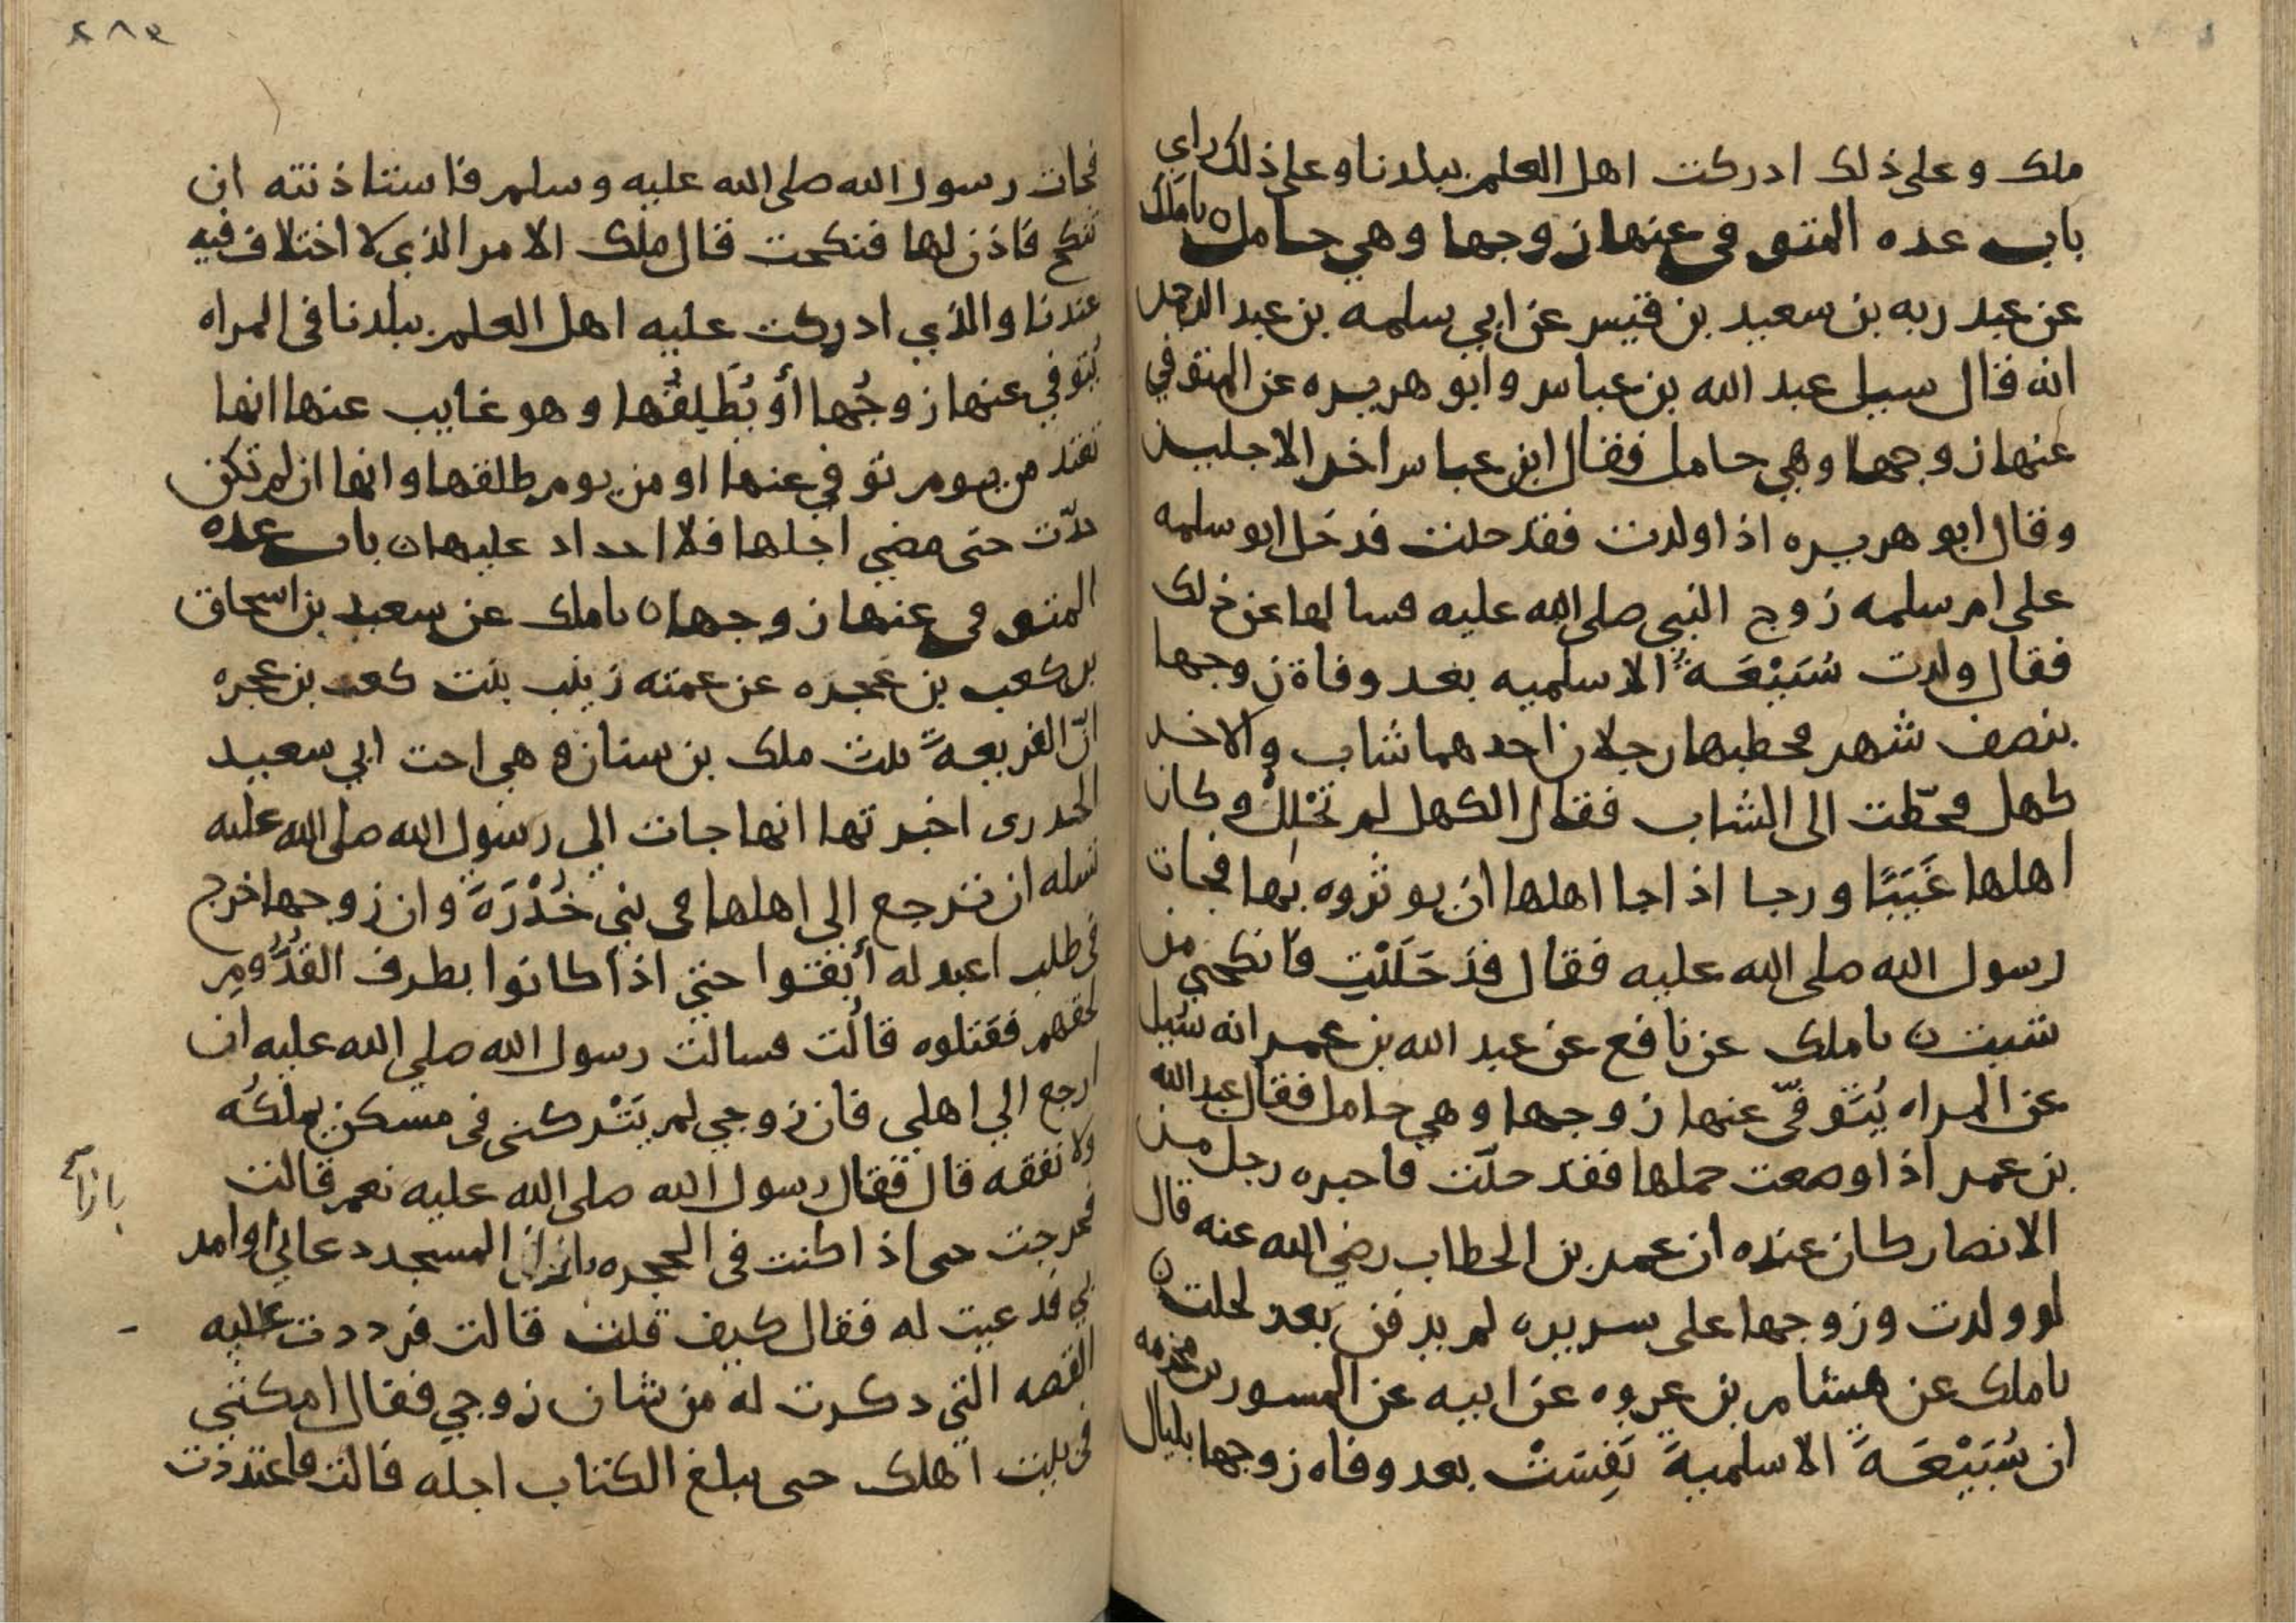 ملك وعلى ذلك ادركت اهل العلم ببلدنا وعلى ذلك راي
باب عده المتوفى عنها زوجها وهي حامل ٥ نا ملك
عن عبد ربه بن سعيد بن قيس عن ابي سلمه بن عبد الرحمن
انه قال سيل عبد الله بن عباس وابو هريره عن المتوفي
عنها زوجها وهي حامل فقال ابن عباس اخر الاجلين
وقال ابو هريره اذا ولدت فقد حلت فدخل ابو سلمه
على ام سلمه زوج النبي صلى الله عليه فسالها عن ذلك
فقال ولدت سُبَيْعَةُ الاسلميه بعد وفاة زوجها
بنصف شهر فخطبها رجلان احدهما شاب والاخر
كهل فحطّت الى الشاب فقال الكهل لم تَحْلِلْ وكان
اهلها غَيَبًا ورجا اذا جا اهلها ان يوثروه بها فجات
رسول الله صلى الله عليه فقال قد حَلَلْتِ فانكحي من
شيت ٥ نا ملك عن نافع عن عبد الله بن عمر انه سُيل
عن المراه يُتَوفّى عنها زوجها وهي حامل فقال عبد الله
بن عمر اذا وضعت حملها فقد حلّت فاخبره رجل من
الانصار كان عنده ان عمر بن الخطاب رضي الله عنه قال
لو ولدت وزوجها على سريره لم يدفن بعد لحلت ٥
نا ملك عن هشام بن عروه عن ابيه عن المسور بن مخرمه
ان سُبَيْعَةَ الاسلميةَ نَفِسَتْ بعد وفاه زوجها بليال
٢٨٤
فجات رسول الله صلى الله عليه وسلم فاستاذنته ان
تنكح فاذن لها فنكحت قال ملك الامر الذي لا اختلاف فيه
عندنا والذي ادركت عليه اهل العلم ببلدنا في المراه
يُتوفي عنها زوجُها أو يُطَلِقُها وهو غايب عنها انها
تعتد من يوم توفي عنها او من يوم طلقها وانها ان لم تكن
حدّت حتى مضي اجلها فلا احداد عليها ٥ باب عده
المتوفى عنها زوجها ٥ نا ملك عن سعيد بن اسحاق
بن كعب بن عجره عن عمته زينب بنت كعب بن عجره
انّ الفريعةَ بنت ملك بن سنان وهي اخت ابي سعيد
الخدرى اخبرتها انها جات الي رسول الله صلى الله عليه
تسله ان ترجع الى اهلها في بني خُدْرَةَ وان زوجها خرج
في طلب اعبد له أبقوا حتي اذا كانوا بطرف القَدُّومِ
لحقهم فقتلوه قالت فسالت رسول الله صلي الله عليه ان
ارجع الي اهلي فان زوجي لم يَتْركني في مسكن يملكُه
ولا نفقه قال فقال رسول الله صلى الله عليه نعم قالت
فخرجت حتى اذا كنت في الحجره المسجد دعاني او امر
بي فدعيت له فقال كيف قلت قالت فرددت عليه
القصه التي ذكرت له من شان زوجي فقال امكثي
في بيت اهلك حتى يبلغ الكتاب اجله قالت فاعتددت